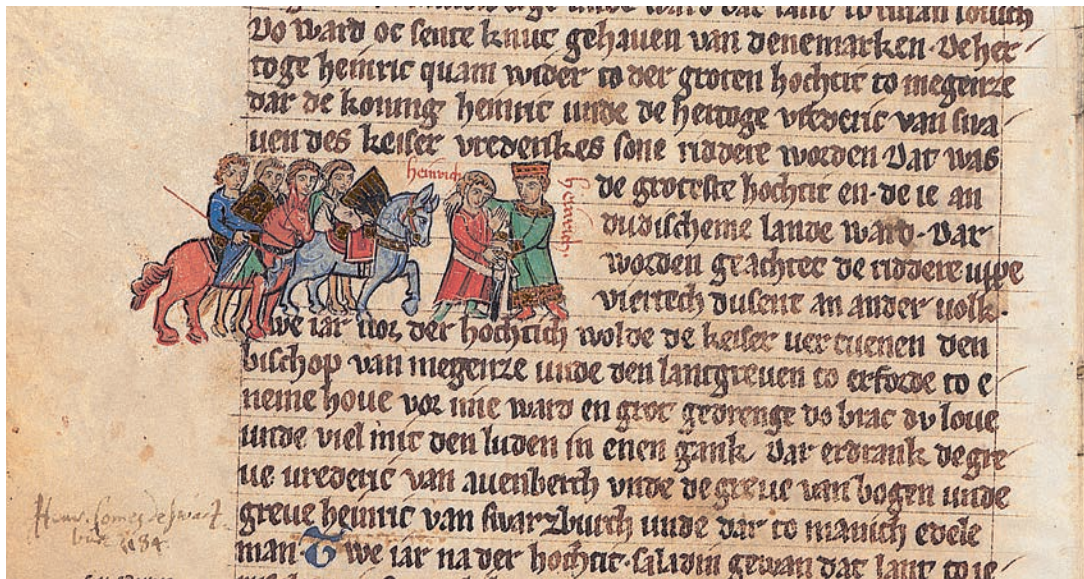 unde ward dat lant to
Do ward oc sente knut gehauen van denemarken. De her
toge heinric quam wider to der groten hochtit to megenze
dar de koning heinric unde de hertoge vrederic van swa
uen des keiser vrederikes sone riddere worden Dat was
heinrich
heinrich
de groteste hochtit en. de ie an
dudischeme lande ward. Dar
worden geachtet de riddere uppe
viertech dusent an ander volk.
we iar vor der hochtich wolde de keiser uer suenen den
bischop van megenze unde den lantgreuen to erforde to e
neme houe vor ime ward en grot gedrenge do brac dv loue
unde viel mit den luden in enen gank. Dar erdrank de gre
ue vrederic van auenberch vnde de greue van bogen unde
greue heinric van swarzburch unde dar to manich edele
Henr. Comes de Swart
burc 1184
man. Twe iar na der hochtit. saladin gewan dat lant to ie